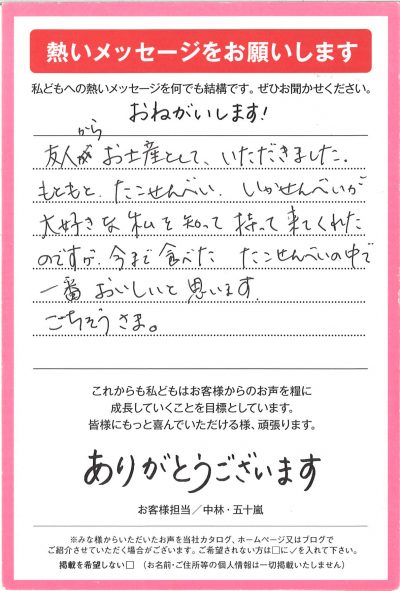 熱いメッセージをお願いします
私どもへの熱いメッセージを何でも結構です。ぜひお聞かせください。
おねがいします!
から
友人が お土産として、いただきました.
もともと、たこせんべい、いかせんべいが
大好きな 私を知って 持って来てくれた
のですが、今まで食べた たこせんべいの中で
一番 おいしいと 思います.
ごちそうさま。
これからも私どもはお客様からのお声を糧に
成長していくことを目標としています。
皆様にもっと喜んでいただける様、頑張ります。
ありがとうございます
お客様担当/中林・五十嵐
※みな様からいただいたお声を当社カタログ、ホームページ又はブログで
ご紹介させていただく場合がございます。ご希望されない方は□に✓を入れて下さい。
掲載を希望しない□ (お名前・ご住所等の個人情報は一切掲載いたしません)